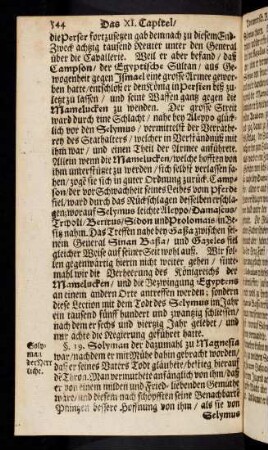 544 Das XI. Capitel/
die Perser fortzusetzen gab dennoch zu diesem End-
Zweck achzig tausend Reuter unter den General
über die Cavallerie. Weil er aber befand / daß
Campson / der Egyptische Sultan / aus Ge-
wogenheit gegen Ismael eine grosse Armee gewor-
ben hatte / entschloß er den König in Persien biß zu-
letzt zu lassen / und seine Waffen ganz gegen die
Mamelucken zu wenden. Der grosse Streit
ward durch eine Schlacht / nahe bey Aleppo glück-
lich vor den Selymus / vermittelst der Verräthe-
rey des Statthalters / welcher in Verständniß mit
ihm war / und einen Theil der Armee anführete.
Allein wenn die Mamelucken / welche hofften von
ihm unterstützet zu werden / sich selbst verlassen sa-
hen / zogë sie sich in guter Ordnung zurück. Camp-
son der vor Schwachheit seines Leibes vom Pferde
fiel / ward durch das Rückschlagen desselben erschla-
gen / worauf Selymus leicht Aleppo / Damascus /
Tripoli / Beritus / Sidon und Ptolomais in Be-
sitz nahm. Das Treffen nahe bey Gaza zwischen sei-
nem General Sinan Bassa / und Gazeles fiel
gleicher Weise auf seiner Seit wohl auß. Wir sol-
len gegenwärtig hierin nicht weiter gehen / sinte-
mahl wir die Verheerung des Königreichs der
Mamelucken / und die Bezwingung Egyptens
an einem andern Orte antreffen werden; sondern
diese Section mit dem Todt des Selymus im Jahr
ein tausend fünff hundert und zwanzig schliessen /
nach dem er sechs und vierzig Jahr gelebet / und
nur achte die Regierung geführet hatte.
Soly-
man
der Herr-
liche.
§. 19. Solyman der dazumahl zu Magnesia
war / nachdem er mit Mühe dahin gebracht worden /
daß er seines Vaters Todt glaubete / bestieg hierauf
dē Thron. Man vermuthete anfänglich von ihm / daß
er von einem milden und Fried-liebenden Gemüthe
wäre / und diesem nach schöpfften seine Benachbarte
Printzen bessere Hoffnung von ihm / als sie von
Selymus